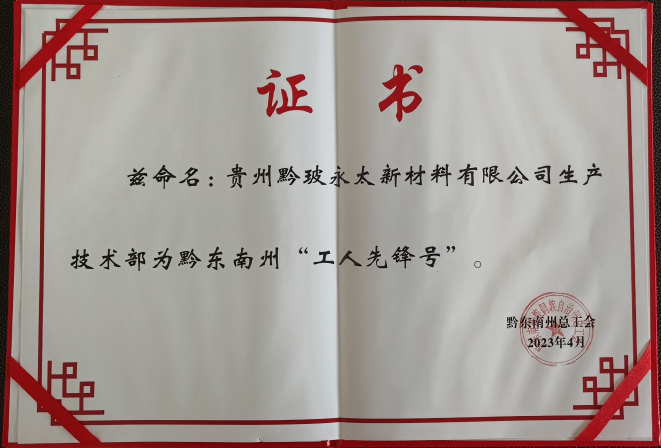 证书
兹命名：贵州黔玻永太新材料有限公司生产
技术部为黔东南州“工人先锋号”。
黔东南州总工会
2023年4月